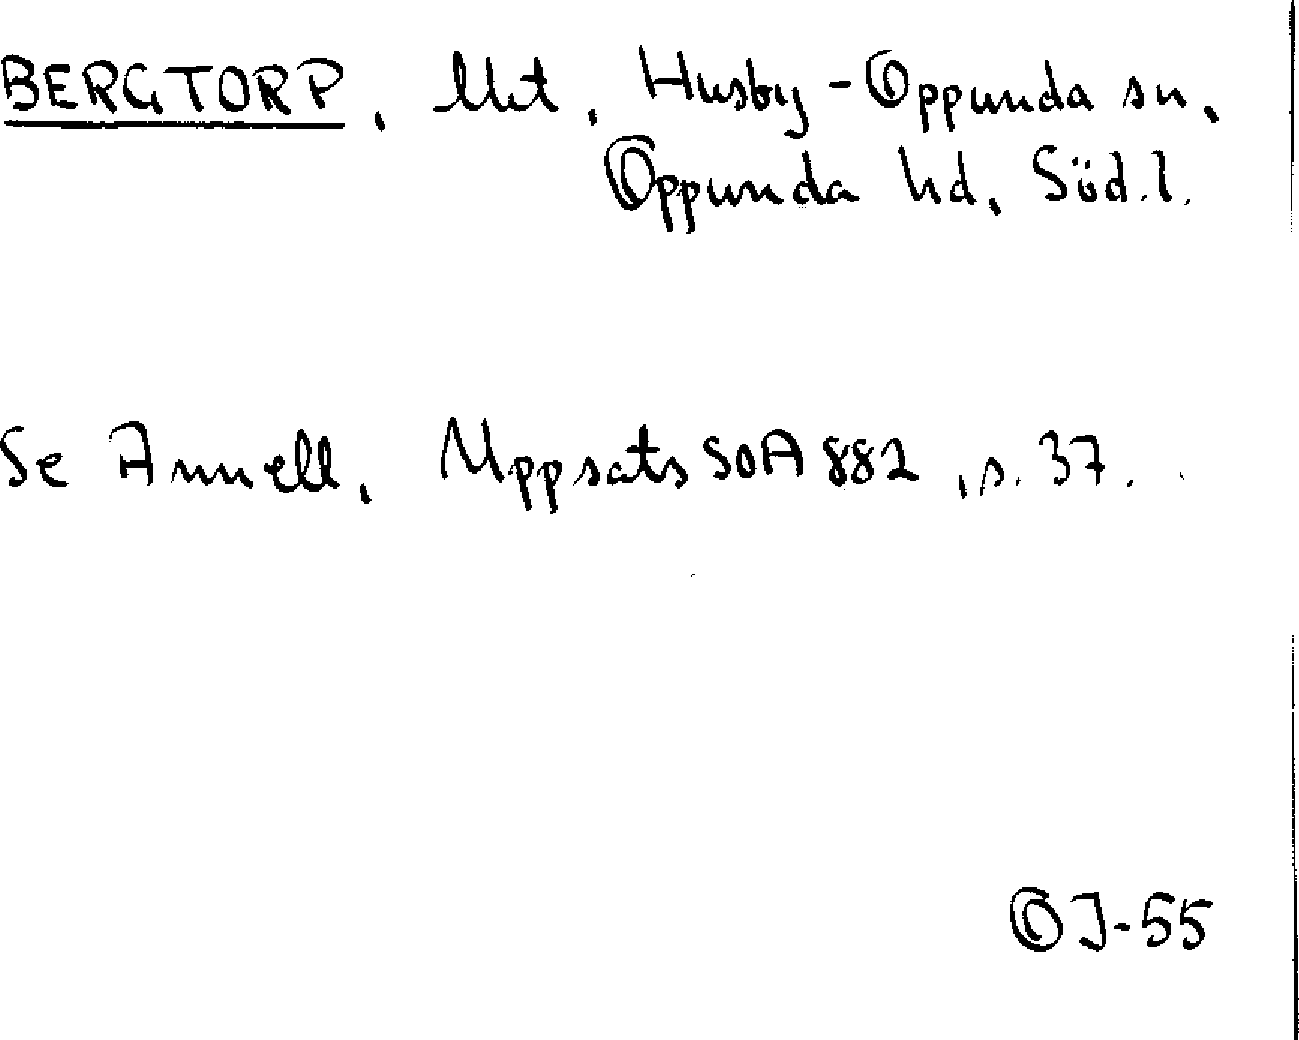 BERGTORP, Utst, Husby-Oppunda sn,
Oppunda hd, Söd.l.
Se Annell, Uppsats SOA 882, s. 37.
OJ-55